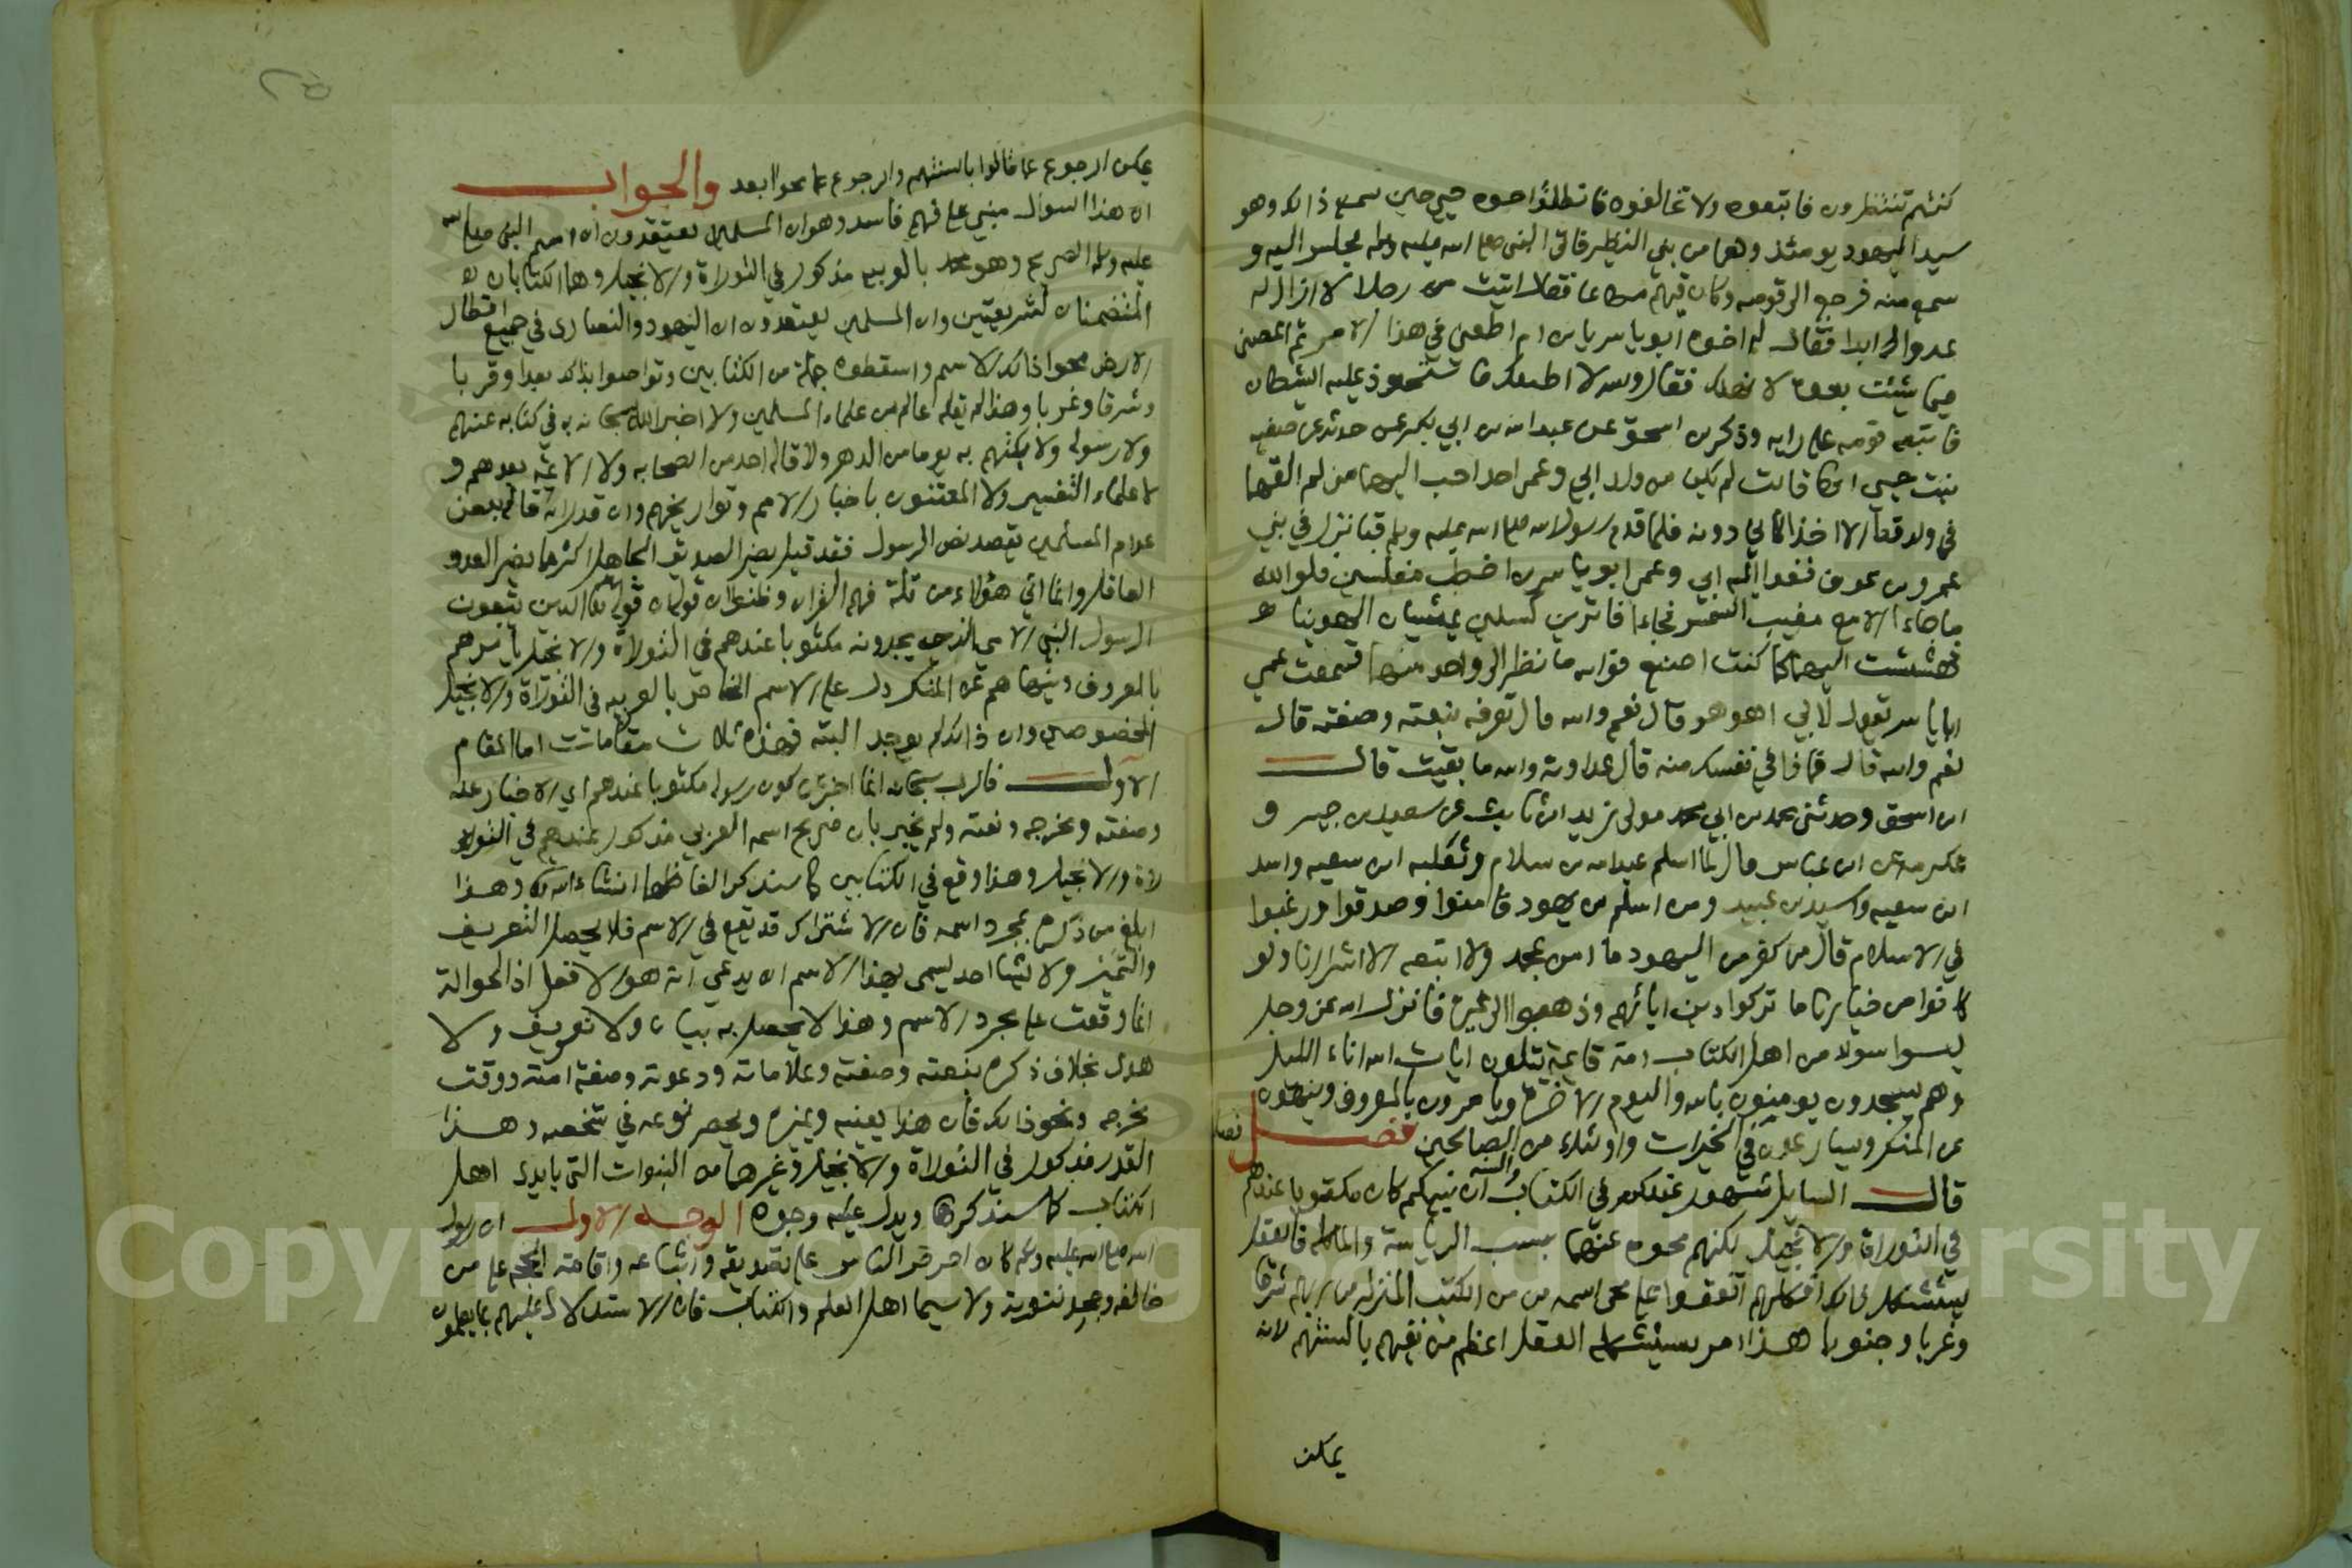 كنتم تنتظرون فاتبعوه ولا تخالفوه فانطلق اخوه حيي حين سمع ذالك وهو
سيد اليهود يومئذ وهما من بني النظير فاتى النبي صلى الله عليه وسلم فجلس اليه و
سمع منه فرجع الى قومه وكان فيهم مطاعا فقال اتيت من رجلا لا ازال له
عدوا ابدا فقال له اخوه ابو ياسر يا ابن ام اطعني في هذا الامر ثم اعصني
فيما شئت بعده لا تهلك فقال والله لا اطيعك فاستحوذ عليه الشيطان
فاتبعه قومه على رايه وذكر ابن اسحق عن عبدالله بن ابي بكر عمن حدثه عن صفية
بنت حيي انها قالت لم يكن من ولد ابي وعمي احد احب اليهما مني لم القهما
في ولد قط الا اخذاني دونه فلما قدم رسول الله صلى الله عليه وسلم قبا نزل في بني
عمرو بن عوف فغدا اليه ابي وعمي ابو ياسر بن اخطب مغلسين فوالله
ما جاءا الا مع مغيب الشمس فجاءا فاترين كسلين يمشيان الهوينا
فهششت اليهما كما كنت اصنع فوالله ما نظر الي واحد منهما فسمعت عمي
ابا ياسر يقول لابي اهو هو قال نعم والله قال تعرفه بنعته وصفته قال
نعم والله قال فماذا في نفسك منه قال عداوته والله ما بقيت قال
ابن اسحق وحدثني محمد بن ابي محمد مولى زيد ابن ثابت عن سعيد بن جبير و
عكرمه عن ابن عباس قال لما اسلم عبدالله بن سلام وثعلبه ابن سعيه واسد
ابن سعيه واسيد بن عبيد ومن اسلم من يهود فامنوا وصدقوا ورغبوا
في الاسلام قال من كفر من اليهود ما امن بمحمد ولا اتبعه الا اشرارنا ولو
كانوا من خيارنا ما تركوا دين ابائهم وذهبوا الى غيره فانزل الله عز وجل
ليسوا سواء من اهل الكتاب امة قايمة يتلون ايات الله اناء الليل
وهم يسجدون يومنون بالله واليوم الاخر ويامرون بالمعروف وينهون
عن المنكر ويسارعون في الخيرات واولئك من الصالحين فصل
قال السايل مشهور عندكم في الكتاب والسنة ان نبيكم كان مكتوبا عندهم
في التوراة والانجيل لكنهم محوه عنهما بسبب الرياسة والماكله فالعقل
يستشكل ذلك افكلهم اتفقوا على محى اسمه من الكتب المنزلة من ربهم شرقا
وغربا وجنوبا هذا امر يستشكله العقل اعظم من نفيهم بالسنتهم لانه
يمكن
يمكن الرجوع عما قالوا بالسنتهم والرجوع عما محوا ابعد والجواب
ان هذا السوال مبني على فهم فاسد وهو ان المسلمين يعتقدون ان اسم النبي صلى الله
عليه وسلم الصريح وهو محمد بالعربيه مذكور في التوراة والانجيل وهما الكتابان
المتضمنان لشريعتين وان المسلمين يعتقدون ان اليهود والنصارى في جميع اقطار
الارض محوا ذالك الاسم واسقطوه جملة من الكتابين وتواصوا بذلك بعدا وقربا
وشرقا وغربا وهذا لم يقله عالم من علماء المسلمين ولا اخبر الله سبحانه به في كتابه عنهم
ولا رسوله ولا بكتهم به يوما من الدهر ولا قاله احد من الصحابه ولا الائمة بعدهم و
لا علماء التفسير ولا المعتنون باخبار الامم وتواريخهم وان قدر انه قاله بعض
عوام المسلمين يقصد نصر الرسول فقد قيل يضر الصديق الجاهل اكثر مما يضر العدو
العاقل وانما اتي هؤلاء من قلة فهم القران وظنوا ان قوله تعالى الذين يتبعون
الرسول النبي الامي الذي يجدونه مكتوبا عندهم في التوراة والانجيل يامرهم
بالمعروف وينهاهم عن المنكر دل على الاسم الخاص بالعربيه في التوراة والانجيل
المخصوصين وان ذالك لم يوجد البته فهذه ثلاث مقامات اما المقام
الاول فالرب سبحانه انما اخبر عن كون رسوله مكتوبا عندهم اي الاخبار عنه
وصفته ومخرجه ونعته ولم يخبر بان صريح اسمه العربي مذكور عندهم في التو
راة والانجيل وهذا وقع في الكتابين كما سنذكر الفاظهما انشاء الله وهذا
ابلغ من ذكره بمجرد اسمه فان الاشتراك قد يقع في الاسم فلا يحصل التعريف
والتميز ولا يشا احد يسمى بهذا الاسم ان يدعي انه هو الا فعل اذ الحوالة
انما وقعت على مجرد الاسم وهذا لا يحصل به بيان ولا تعريف ولا
هدى بخلاف ذكره بنعته وصفته وعلاماته ودعوته وصفة امته ووقت
مخرجه ونحو ذالك فان هذا يعينه ويميزه ويحصر نوعه في شخصه وهذا
القدر مذكور في التوراة والانجيل وغيرهما من النبوات التي بايدي اهل
الكتاب كما سنذكرها ويدل عليه وجوه الوجه الاول ان رسول
الله صلى الله عليه وسلم كان احرص الناس على تصديقه واتباعه واقامة الحجة على من
خالفه وجحد نبوته ولا سيما اهل العلم والكتاب فان الاستدلال عليهم بما يعلمون
Copyright © King Saud University